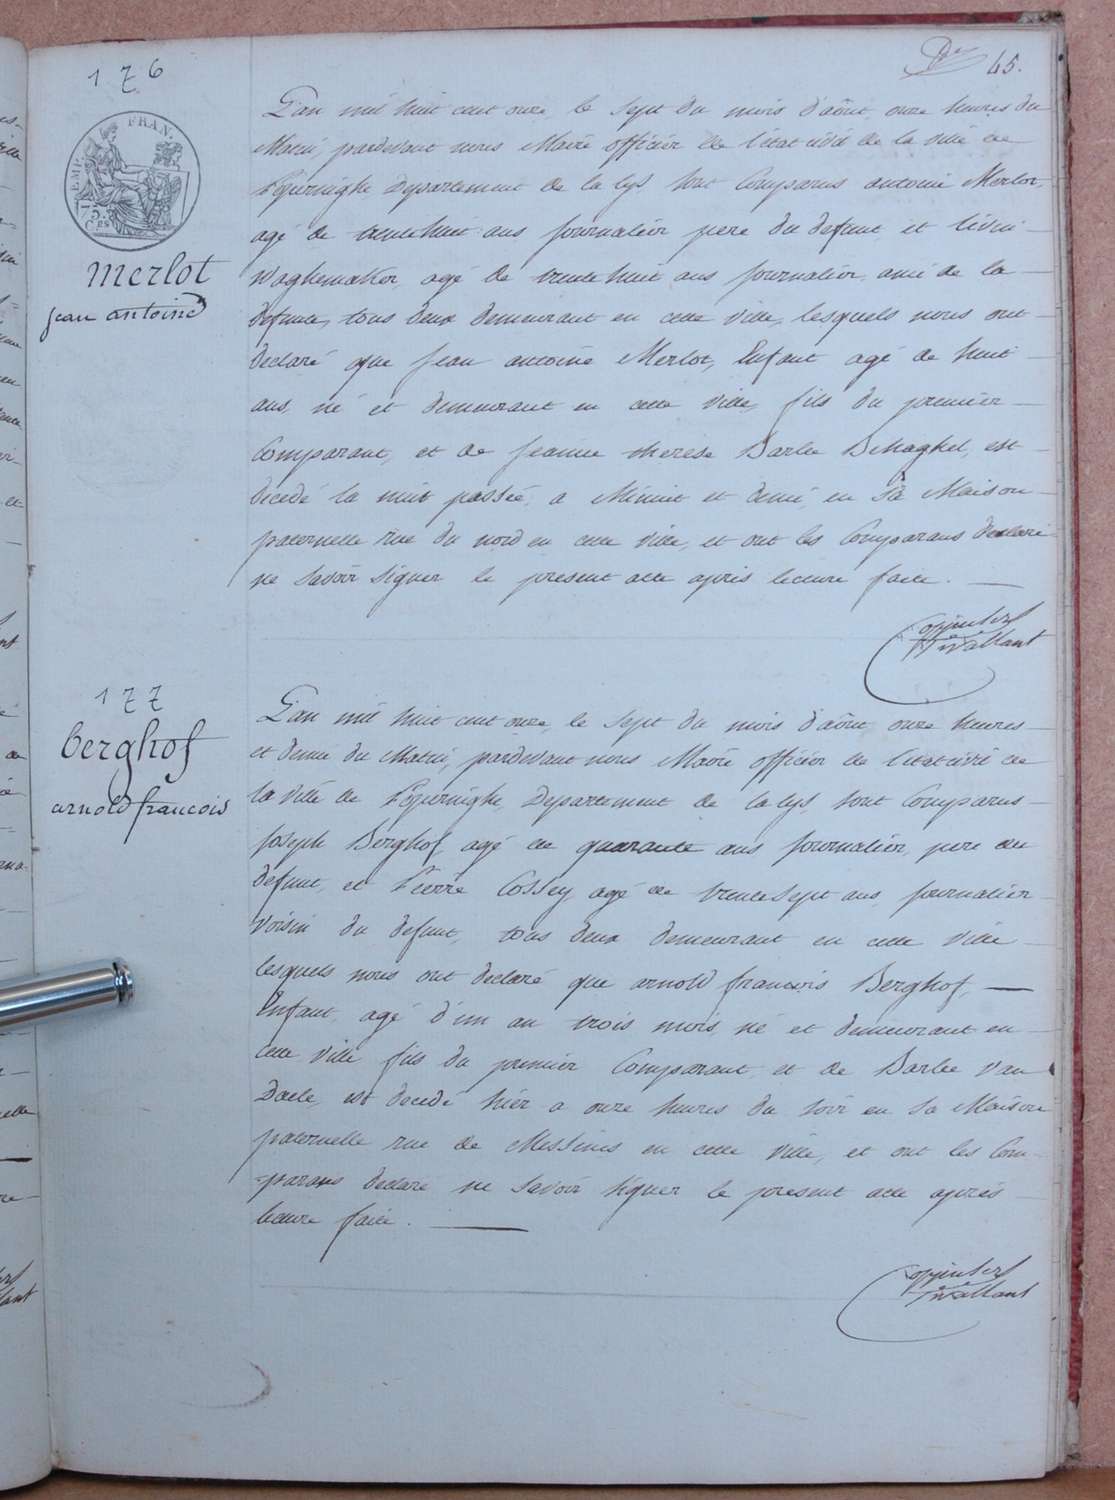 45.
176
EMP. FRAN.
75.
Ces
merlot
jean antoine
L'an mil huit cent onze, le sept du mois d'août, onze heures du
Matin, pardevant nous Maire officier de l'état civil de la ville de
Poperinghe, departement de la lys, sont Comparus antoine Merlot,
agé de trentehuit ans journalier pere du defunt et livin
Waghemaker, agé de trente huit ans journalier, ami de la
defunte, tous deux demeurant en cette ville, lesquels nous ont
declaré que jean antoine Merlot, Enfant agé de huit
ans, né et demeurant en cette ville, fils du premier
Comparant, et de jeanne therese Barbe, est
decedé la nuit passée, a Minuit et demi, en sa Maison
paternelle rue du nord en cette ville, et ont les Comparans declaré
ne savoir signer le present acte après lecture faite.
177
berghof
arnold francois
L'an mil huit cent onze, le sept du mois d'août, onze heures
et demie du Matin, pardevant nous Maire officier de l'état civil de
la ville de Poperinghe, Departement de la lys, sont Comparus
joseph Berghof, agé de quarante ans journalier, pere du
defunt, et Pierre Cossey agé de trentesept ans, journalier
voisin du defunt, tous deux demeurant en cette ville
lesquels nous ont declaré que arnold francois Berghof,
Enfant, agé d'un an trois mois, né et demeurant en
cette ville fils du premier Comparant, et de Barbe Van
Daele, est decedé hier a onze heures du soir en sa Maison
paternelle rue de Messines en cette ville, et ont les Com-
-parans declaré ne savoir signer le present acte après
lecture faite.